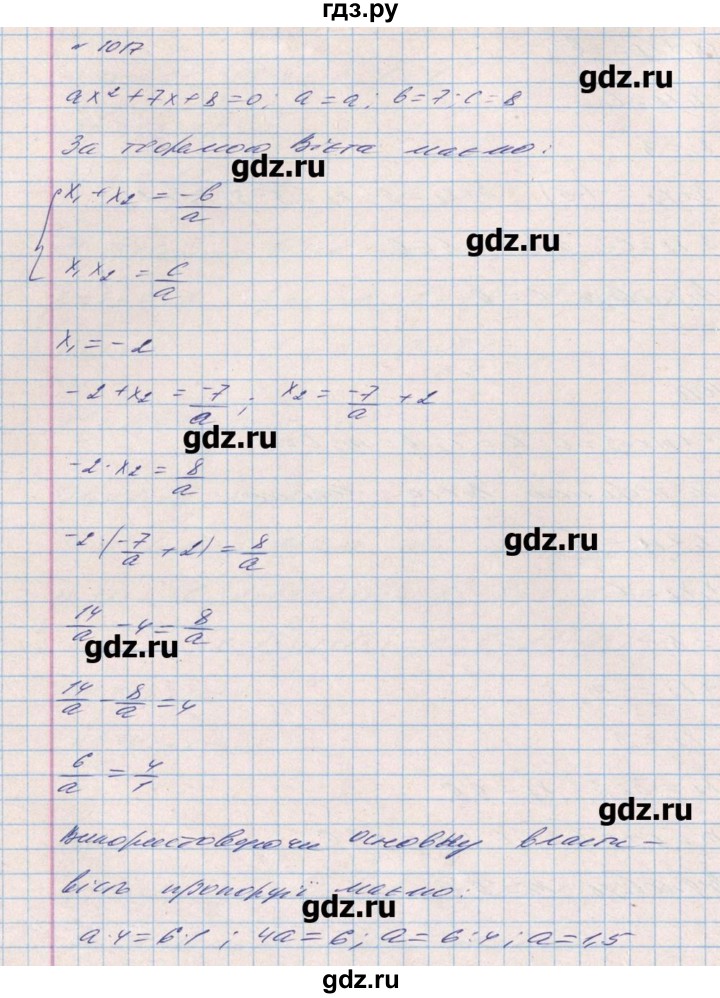 гдз.ру
№ 1017
gdz.ru
ax² + 7x + 8 = 0; a = a; b = 7; c = 8
За теоремою Вієта маємо:
gdz.ru
x₁ + x₂ = -b/a
gdz.ru
x₁x₂ = c/a
x₁ = -2
-2 + x₂ = -7/a; x₂ = -7/a + 2
gdz.ru
-2·x₂ = 8/a
gdz.ru
-2·(-7/a + 2) = 8/a
14/a - 4 = 8/a
gdz.ru
14/a - 8/a = 4
6/a = 4/1
gdz.ru
Використовуючи основну власти-
вість пропорції маємо:
gdz.ru
a·4 = 6·1; 4a = 6; a = 6:4; a = 1,5
gdz.ru